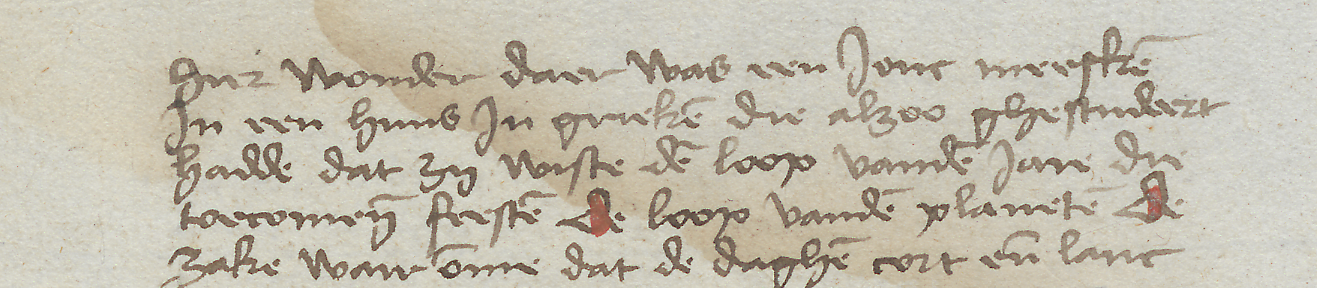 Hier wonder daer was een Jonc meeskē
In een huus In griekē die alzoo ghestudeert
hadde dat zy wiste dē loop vandē Jare die
toecomēn feestē de loop vandē planetē de
zake waer ōme dat de daghē cort eñ lanc